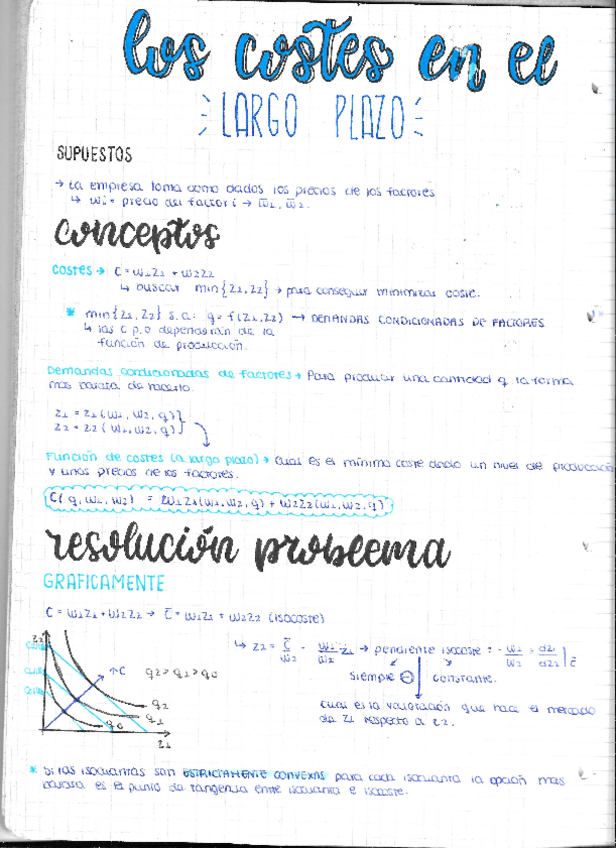 los costes en el
LARGO PLAZO
SUPUESTOS
→ La empresa toma como dados los precios de los factores
↳ wi = precio del factor i → w̅1, w̅2.
conceptos
COSTES → C = w1z1 + w2z2
↳ buscar min{z1, z2} → para conseguir minimizar coste.
* min{z1, z2} s.a: q = f(z1, z2) → DEMANDAS CONDICIONADAS DE FACTORES
↳ las c.p.o dependerán de la
función de producción.
Demandas condicionadas de factores → Para producir una cantidad q la forma
más barata de hacerlo.
z1 = z1(w1, w2, q)
z2 = z2(w1, w2, q)
Función de costes (a largo plazo) → Cual es el mínimo coste dado un nivel de producción
y unos precios de los factores.
C(q, w1, w2) = w1z1(w1, w2, q) + w2z2(w1, w2, q)
resolución probeema
GRAFICAMENTE
C = w1z1 + w2z2 → C̅ = w1z1 + w2z2 (isocoste)
↳ z2 = C̅/w2 - w1/w2 z1 → pendiente isocoste = - w1/w2 = dz1/dz2 | c̅
siempre ⊖ constante.
cual es la valoración que hace el mercado
de z1 respecto a z2.
z2
↑C q2 > q1 > q0
q2
q1
q0
z1
* Si las isocuantas son ESTRICTAMENTE CONVEXAS para cada isocuanta la opción más
barata es el punto de tangencia entre isocuanta e isocoste.